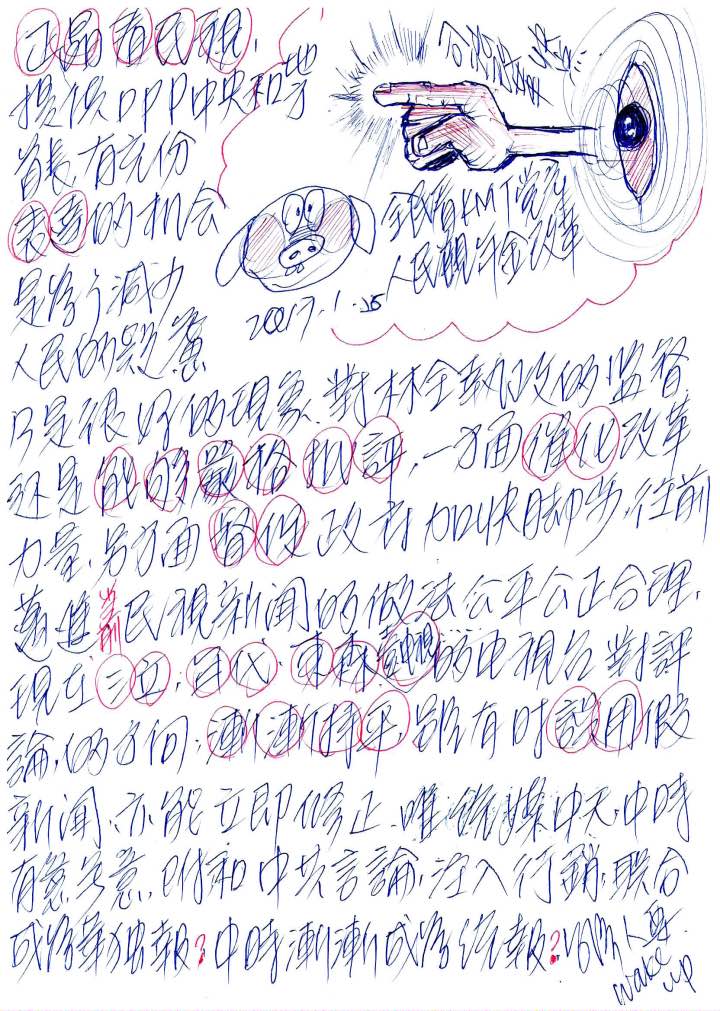 正晶看民視,
提供DPP中央和地方
首長,有充份
表達的机会
是為了減少
人民的疑慮
全民看KMT党产
人民觀年金改革
2017.1.15
只是很好的現象.對林全執政的监督
还是能够嚴格批評,一方面催化改革
力量,另方面督促政府加快脚步,往前
邁進 当前民視新闻的做法公平公正合理,
現在三立,年代,東森,中視的电視台對評
論,的方向;漸漸持平,雖有时誤用假
新闻,亦能立即修正.唯統媒中天,中時
有意无意,附和中共言論,注入行銷,联合
成為華独報?中時漸漸成為统報?
wake
up